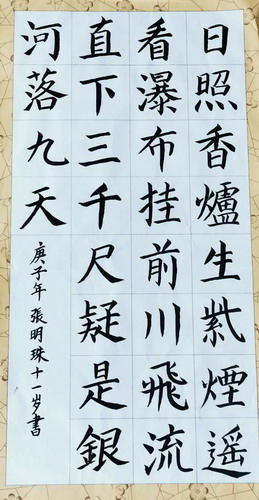 日照香爐生紫煙遥
看瀑布挂前川飛流
直下三千尺疑是銀
河落九天
庚子年張明珠十一岁書